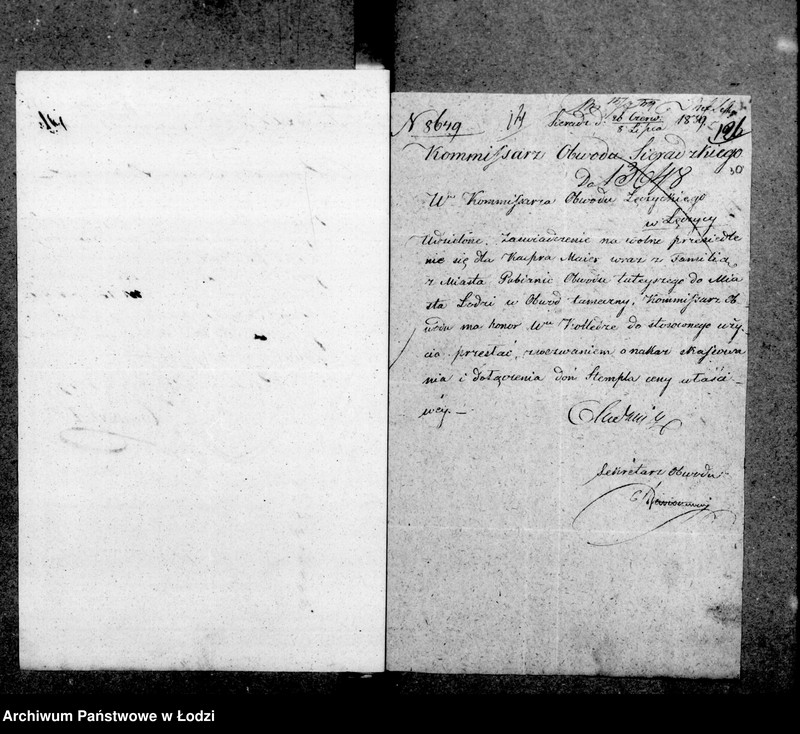 N 8649
Sieradz d. 26 Czerw. 1839
8 Lipca
196
Kommissarz Obwodu Sieradzkiego
Do 13648
Wo Kommissarza Obwodu Łęczyckiego
w Łęczycy
Udzielone Zaświadczenie na wolne przesiedle
nie się dla Kaspra Maier wraz z Familią
z Miasta Pabianic Obwodu tuteyszego do Mia
sta Łodzi w Obwod tameczny, Kommissarz Ob
wodu ma honor Wmu Kolledze do stosownego uży
cia przesłać, z wezwaniem o nakaz skassowa
nia i dołączenia doń Stempla ceny właści
wéy. —
Sekretarz Obwodu
Archiwum Państwowe w Łodzi